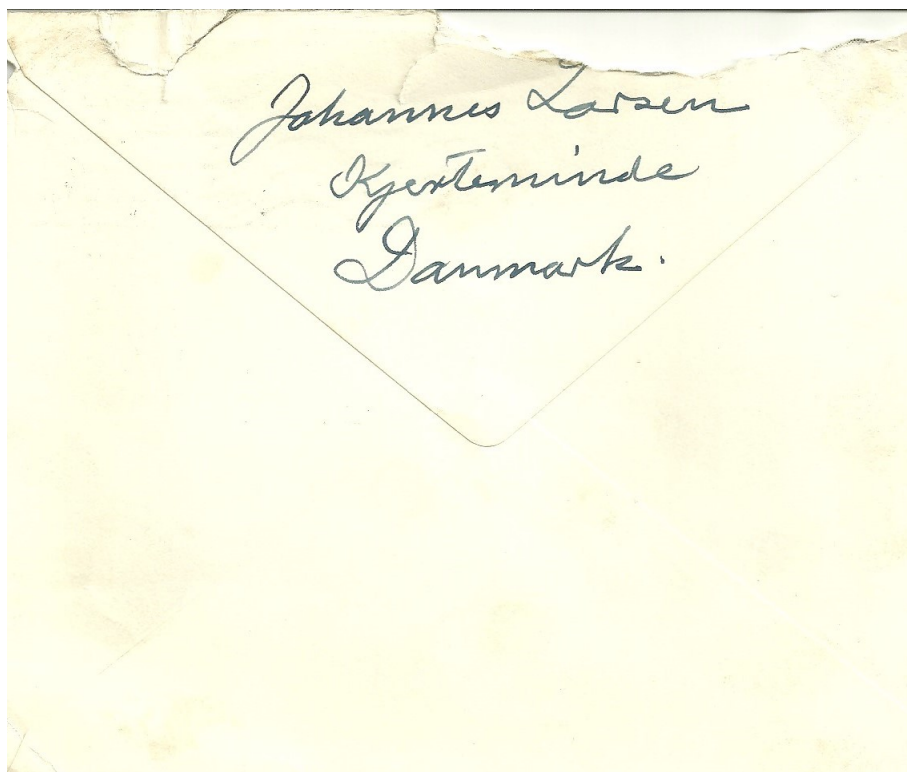 Johannes Larsen
Kjerteminde
Danmark.